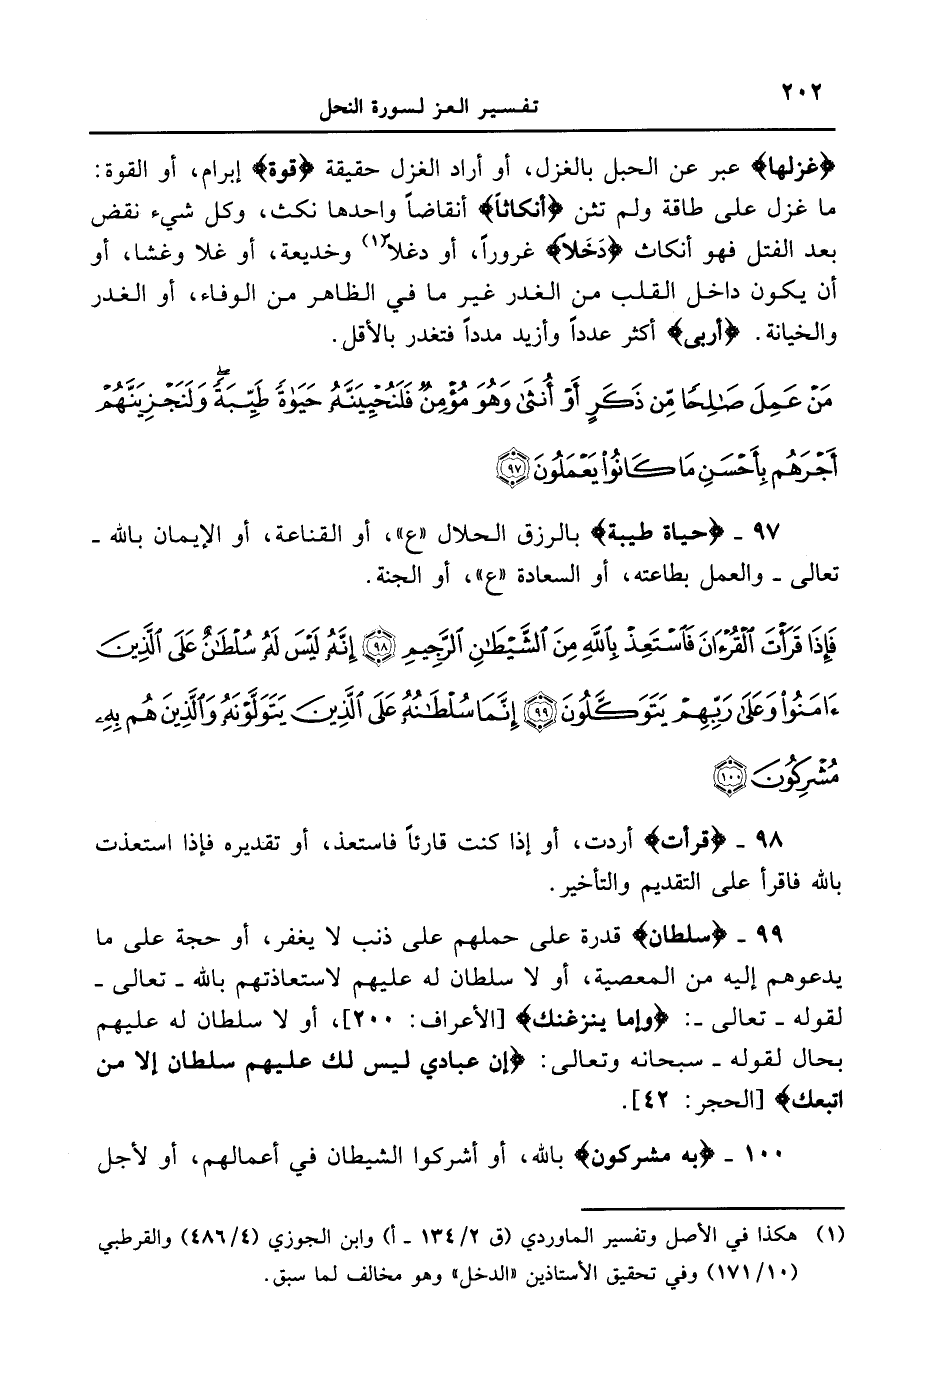 ٢٠٢
تفسير العز لسورة النحل
﴿غزلها﴾ عبر عن الحبل بالغزل، أو أراد الغزل حقيقة ﴿قوة﴾ إبرام، أو القوة:
ما غزل على طاقة ولم تثن ﴿أنكاثاً﴾ أنقاضاً واحدها نكث، وكل شيء نقض
بعد الفتل فهو أنكاث ﴿دَخَلاً﴾ غروراً، أو دغلاً(١) وخديعة، أو غلا وغشا، أو
أن يكون داخل القلب من الغدر غير ما في الظاهر من الوفاء، أو الغدر
والخيانة. ﴿أربى﴾ أكثر عدداً وأزيد مدداً فتغدر بالأقل.
مَنْ عَمِلَ صَـٰلِحًا مِّن ذَكَرٍ أَوْ أُنثَىٰ وَهُوَ مُؤْمِنٌ فَلَنُحْيِيَنَّهُۥ حَيَوٰةً طَيِّبَةًۖ وَلَنَجْزِيَنَّهُمْ
أَجْرَهُم بِأَحْسَنِ مَا كَانُوا۟ يَعْمَلُونَ ﴿٩٧﴾
٩٧ ـ ﴿حياة طيبة﴾ بالرزق الحلال «ع»، أو القناعة، أو الإيمان بالله ـ
تعالى ـ والعمل بطاعته، أو السعادة «ع»، أو الجنة.
فَإِذَا قَرَأْتَ ٱلْقُرْءَانَ فَٱسْتَعِذْ بِٱللَّهِ مِنَ ٱلشَّيْطَـٰنِ ٱلرَّجِيمِ ﴿٩٨﴾ إِنَّهُۥ لَيْسَ لَهُۥ سُلْطَـٰنٌ عَلَى ٱلَّذِينَ
ءَامَنُوا۟ وَعَلَىٰ رَبِّهِمْ يَتَوَكَّلُونَ ﴿٩٩﴾ إِنَّمَا سُلْطَـٰنُهُۥ عَلَى ٱلَّذِينَ يَتَوَلَّوْنَهُۥ وَٱلَّذِينَ هُم بِهِۦ
مُشْرِكُونَ ﴿١٠٠﴾
٩٨ ـ ﴿قرأت﴾ أردت، أو إذا كنت قارئاً فاستعذ، أو تقديره فإذا استعذت
بالله فاقرأ على التقديم والتأخير.
٩٩ ـ ﴿سلطان﴾ قدرة على حملهم على ذنب لا يغفر، أو حجة على ما
يدعوهم إليه من المعصية، أو لا سلطان له عليهم لاستعاذتهم بالله ـ تعالى ـ
لقوله ـ تعالى ـ: ﴿وإما ينزغنك﴾ [الأعراف: ٢٠٠]، أو لا سلطان له عليهم
بحال لقوله ـ سبحانه وتعالى: ﴿إن عبادي ليس لك عليهم سلطان إلا من
اتبعك﴾ [الحجر: ٤٢].
١٠٠ ـ ﴿به مشركون﴾ بالله، أو أشركوا الشيطان في أعمالهم، أو لأجل
(١) هكذا في الأصل وتفسير الماوردي (ق ١٣٤/٢ ـ أ) وابن الجوزي (٤٨٦/٤) والقرطبي
(١٧١/١٠) وفي تحقيق الأستاذين «الدخل» وهو مخالف لما سبق.